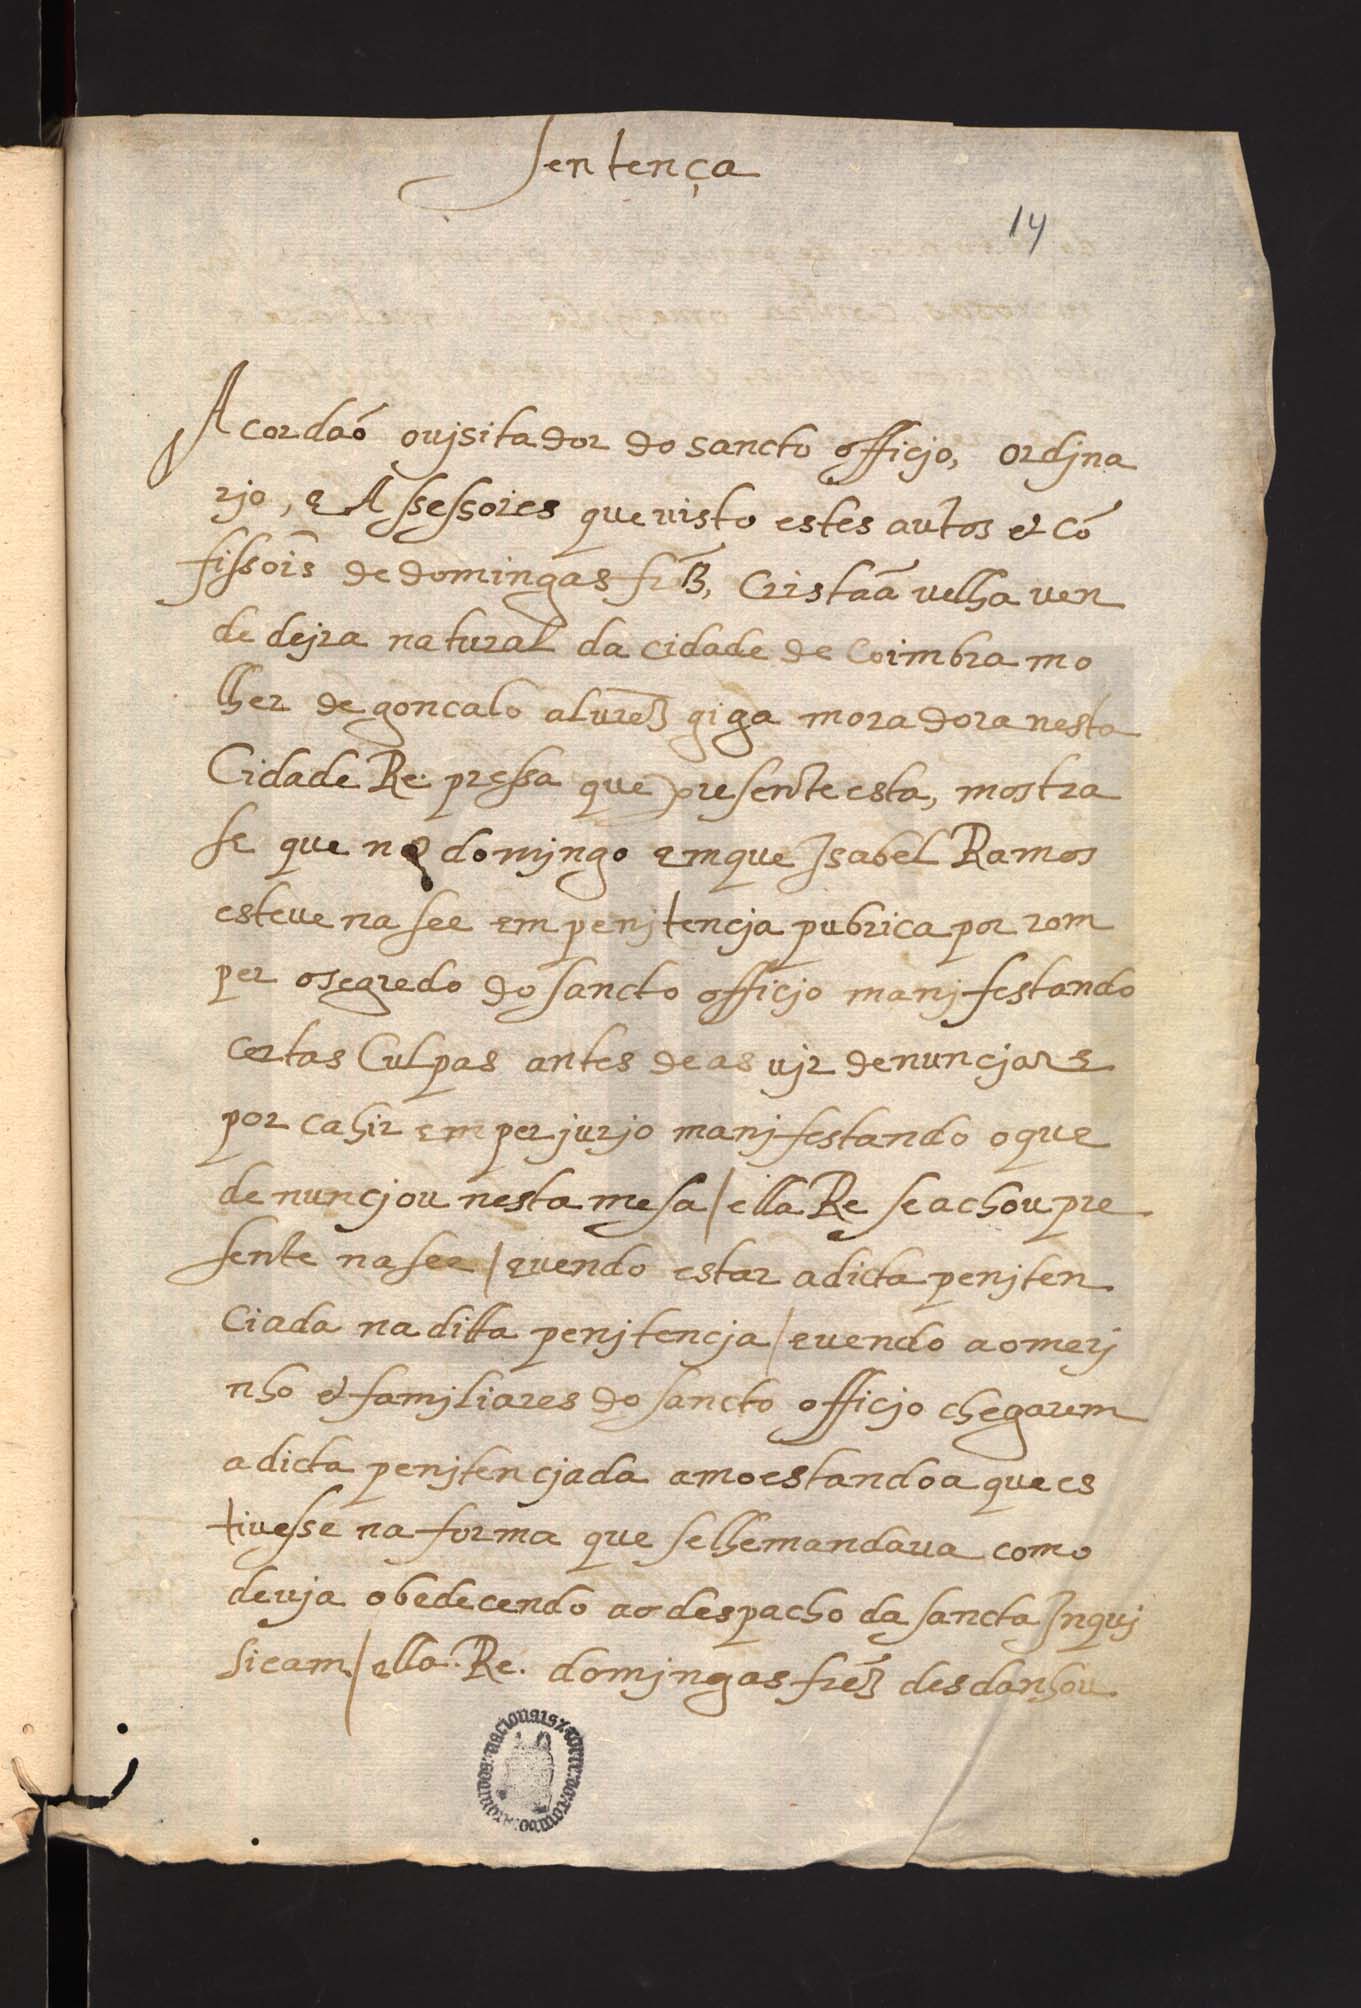 Sentença
14
Acordaõ ovjsitador do sancto officjo, ordjna
rjo, e Assessores que visto estes autos et cõ
fissois de domingas frz, Cristaã velha ven
dedejra natural da cidade de Coimbra mo
lher de goncalo alvrez giga moradora nesta
Cidade Re pressa que presente esta, mostra
se que no domjngo em que Isabel Ramos
esteve na see em penjtencja pubrica por rom
per osegredo do sancto officjo manjfestando
certas Culpas antes de as vjr denuncjar e
por cahir em perjurjo manjfestando oque
denuncjou nesta mesa / ella Re se achou pre
sente na see / evendo estar adicta penjten
ciada na ditta penjtencja / evendo aomerj
nho et famjliares do sancto officjo chegarem
adicta penjtencjada amoestandoa que es
tivesse na forma que selhemandava como
devja obedecendo ao despacho da sancta Inquj
sicam / ella. Re. domjngas frez desdanhou
ARQUIVOS NACIONAIS TORRE DO TOMBO